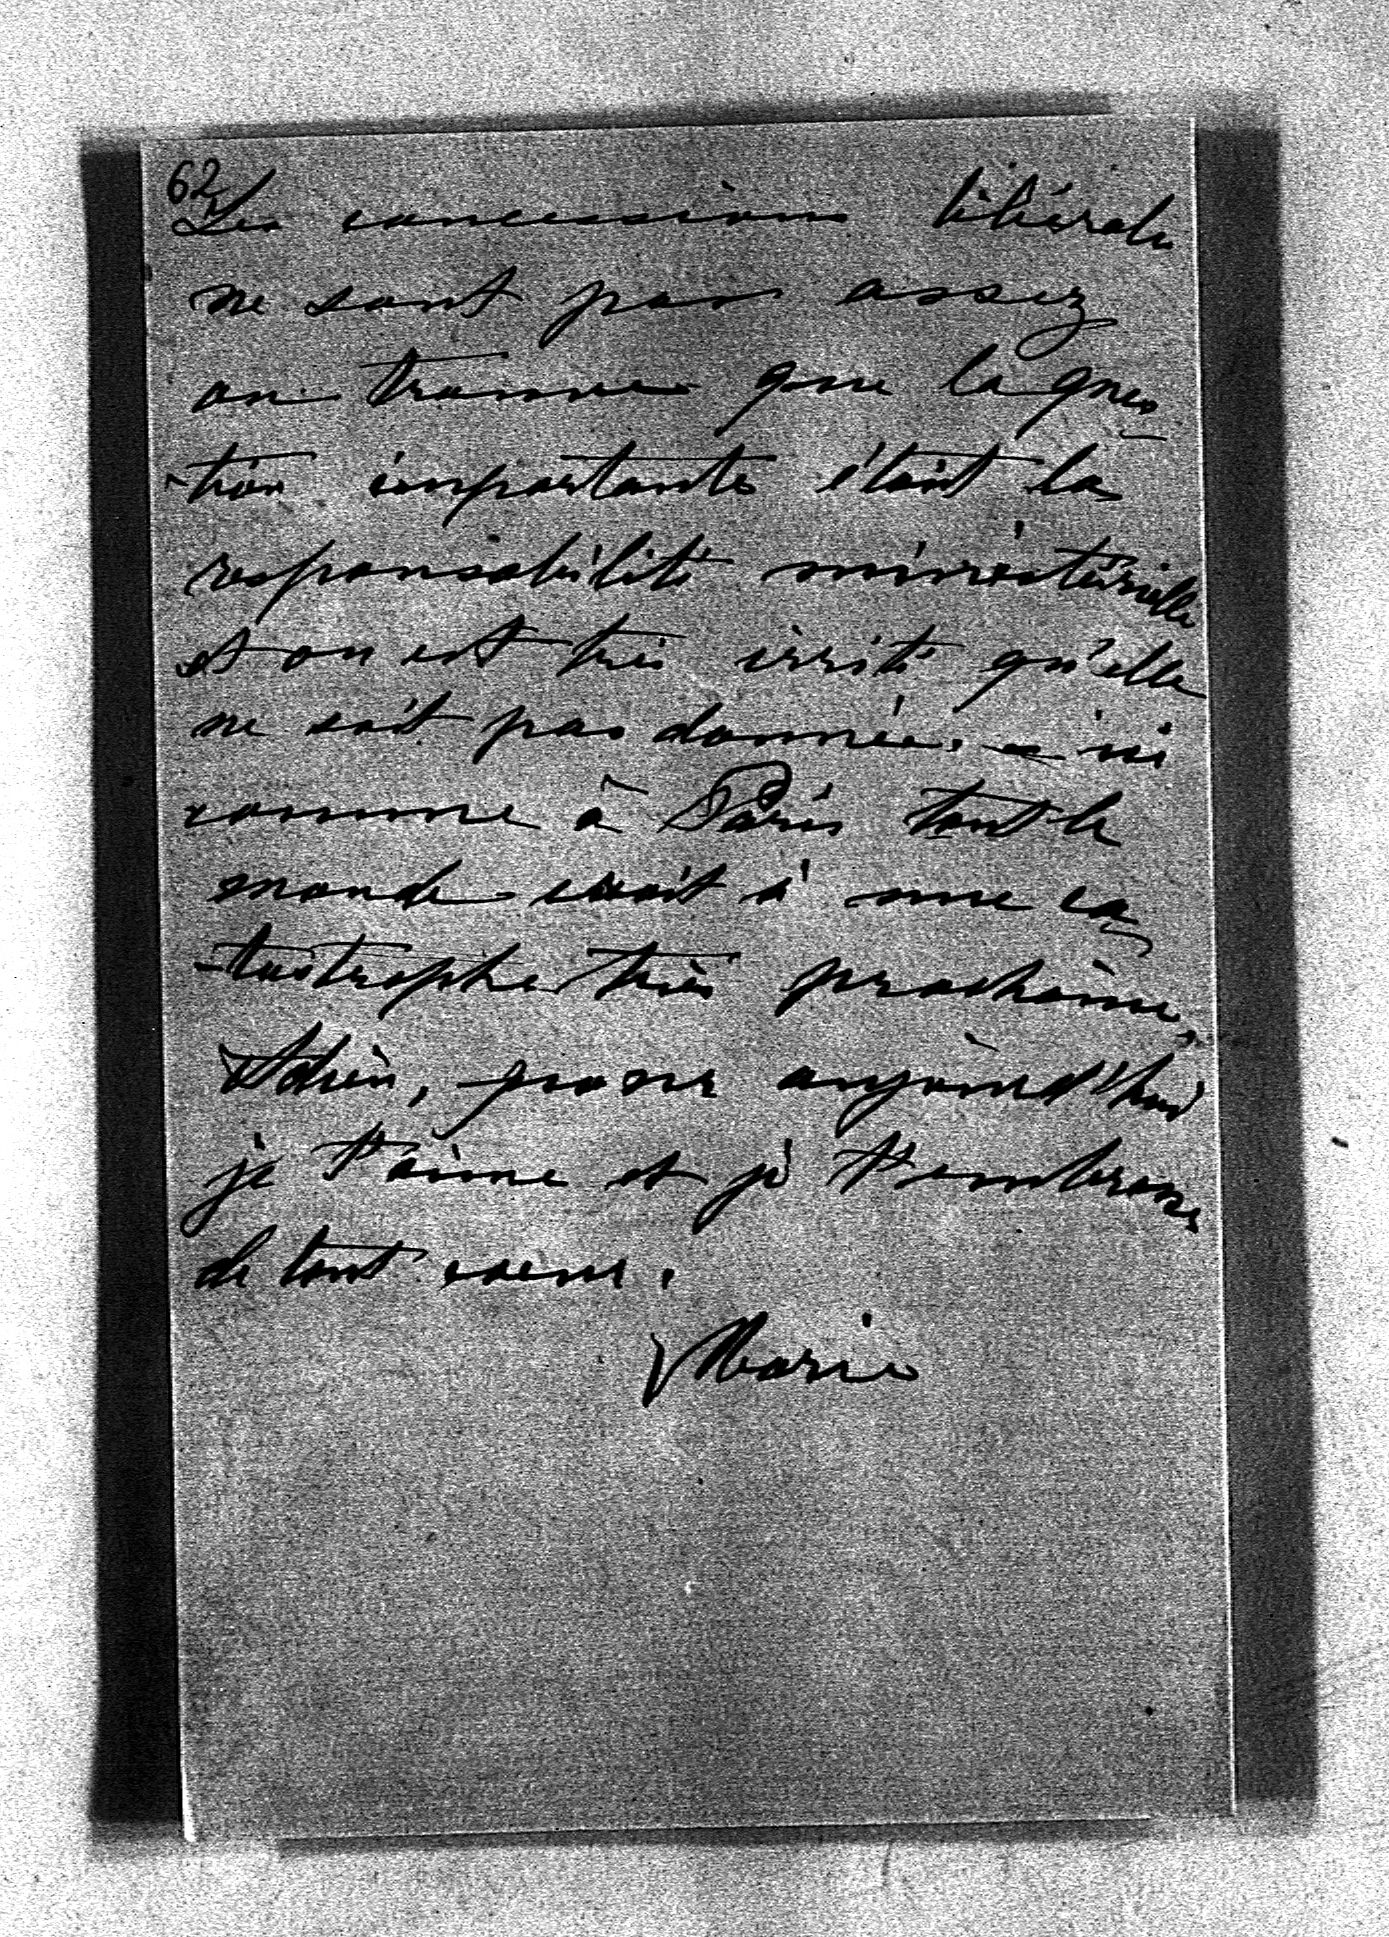 62
Les concessions libérales
ne sont pas assez
on trouve que la ques
-tion importante était la
responsabilité ministérielle
et on est très irrité qu'elle
ne soit pas donnée. - ici
comme à Paris tout le
monde croit à une ca
-tastrophe très prochaine.
Adieu, pour aujourd'hui
je t'aime et je t'embrasse
de tout coeur.
Marie